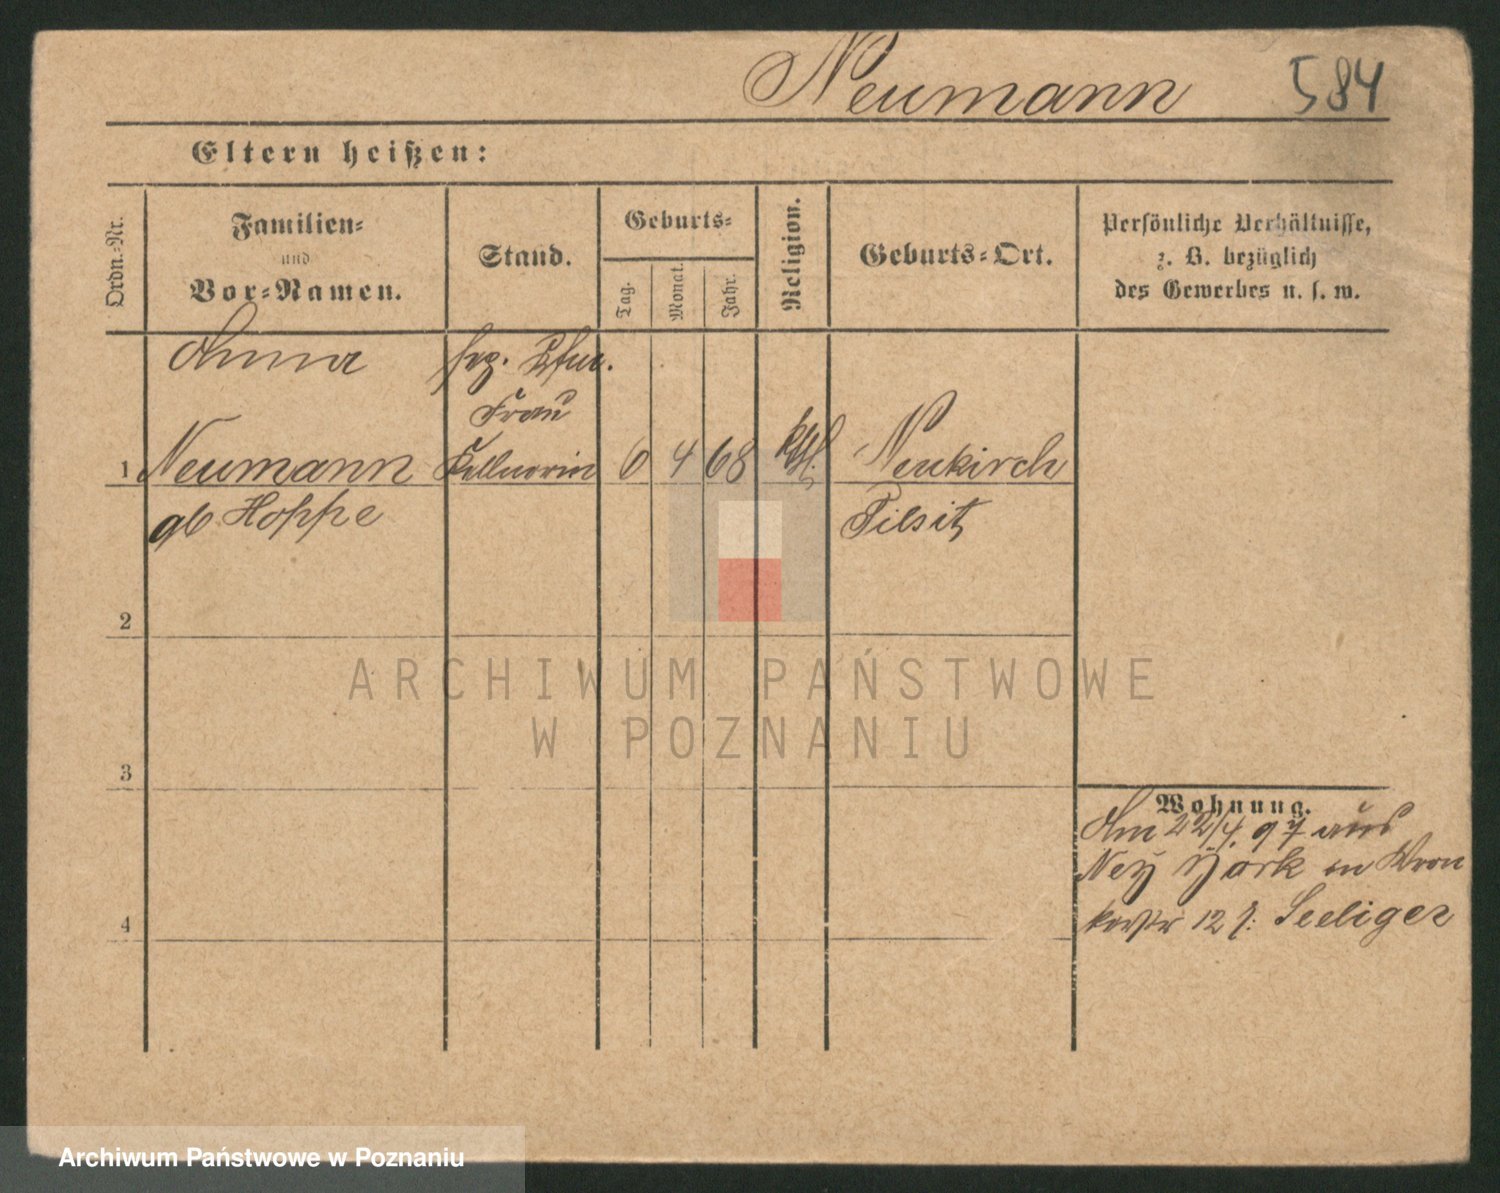 Neumann 584
Eltern heißen:
Ordn.-Nr.
Familien-
und
Vor-Namen.
Stand.
Geburts-
Tag.
Monat.
Jahr.
Religion.
Geburts-Ort.
Persönliche Verhältnisse,
z. B. bezüglich
des Gewerbes u. s. w.
Anna
Frau
1 Neumann Kellnerin 6 4 68 kth. Neukirch
gb Hoppe Tilsit
2
3
4
Wohnung.
Am 22/4. 97 aus
York in Kron
12 b: Seeliger
ARCHIWUM PAŃSTWOWE
W POZNANIU
Archiwum Państwowe w Poznaniu